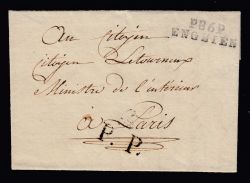 P86P
ENGHIEN
Au Citoyen
Citoyen Letourneux
Ministre de l'intérieur
à Paris
P. P.